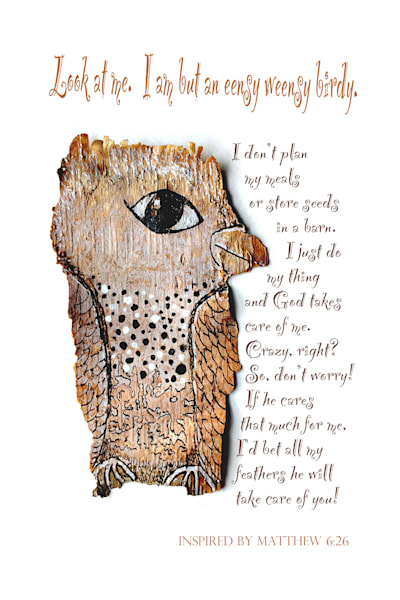 Look at me. I am but an eensy weensy birdy.
I don't plan
my meals
or store seeds
in a barn.
I just do
my thing
and God takes
care of me.
Crazy, right?
So, don't worry!
If he cares
that much for me,
I'd bet all my
feathers he will
take care of you!
INSPIRED BY MATTHEW 6:26